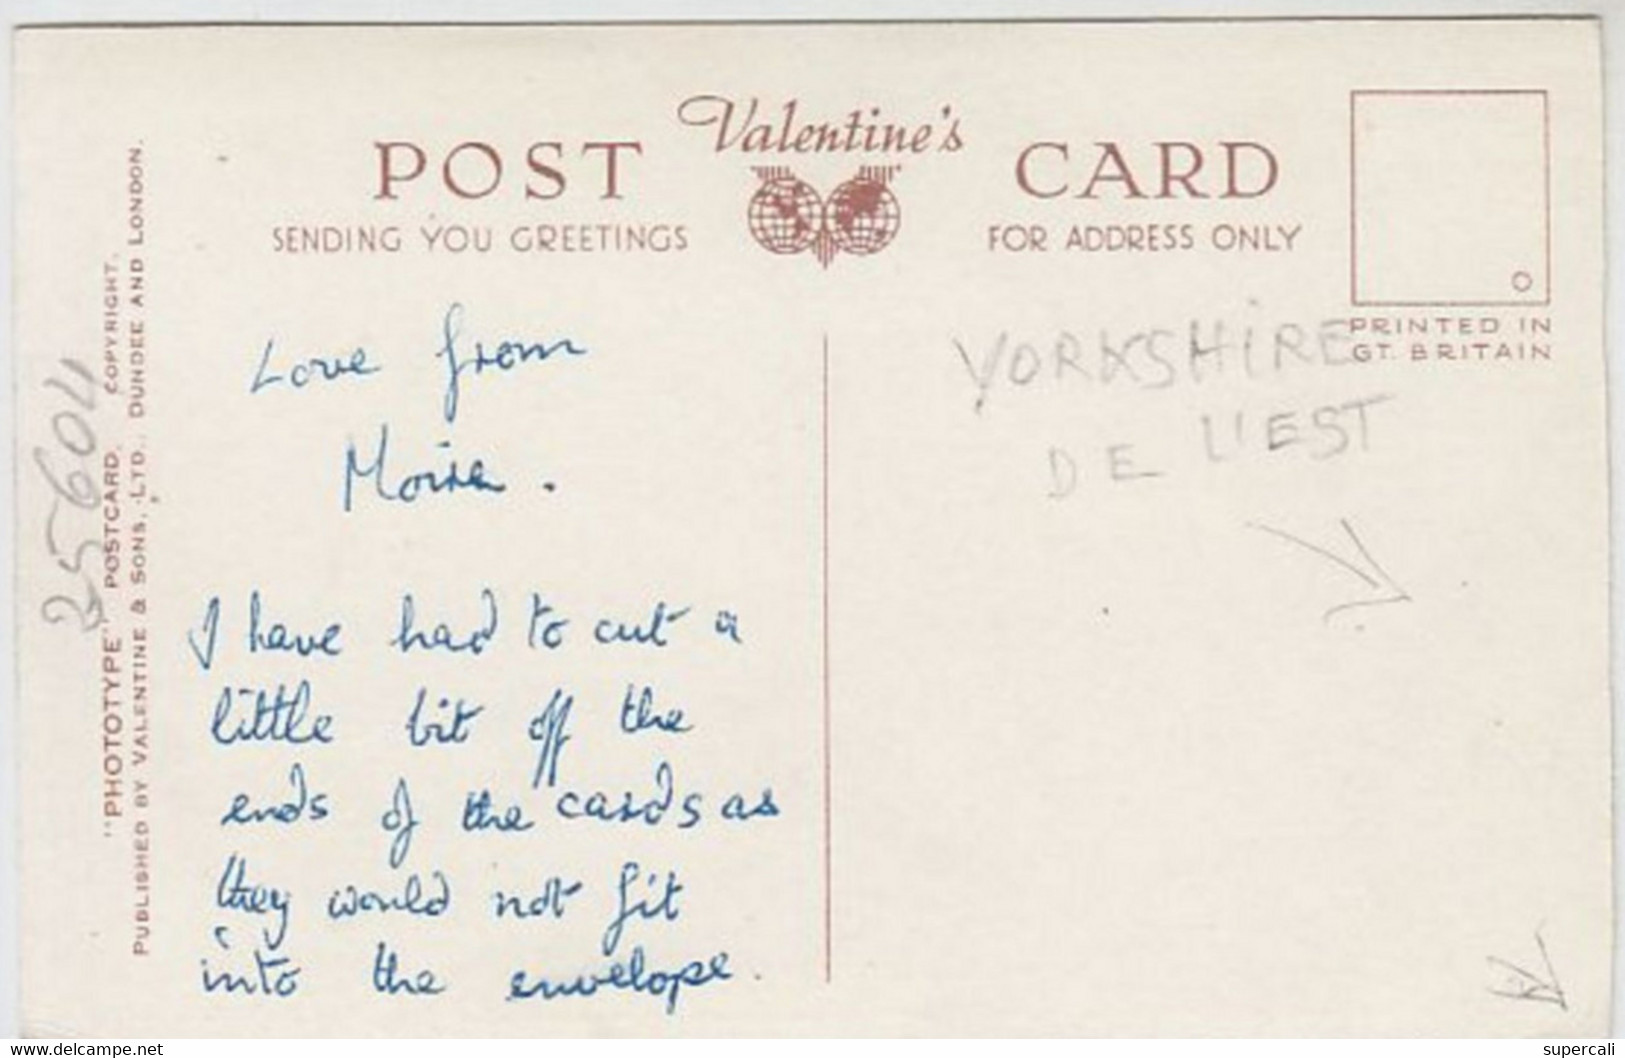 Valentine's
POST CARD
SENDING YOU GREETINGS
FOR ADDRESS ONLY
PRINTED IN
GT. BRITAIN
"PHOTOTYPE" POSTCARD. COPYRIGHT.
PUBLISHED BY VALENTINE & SONS, LTD., DUNDEE AND LONDON.
25604
Love from
Moira.
I have had to cut a
little bit off the
ends of the cards as
they would not fit
into the envelope.
YORKSHIRE
DE L'EST
www.delcampe.net
supercali